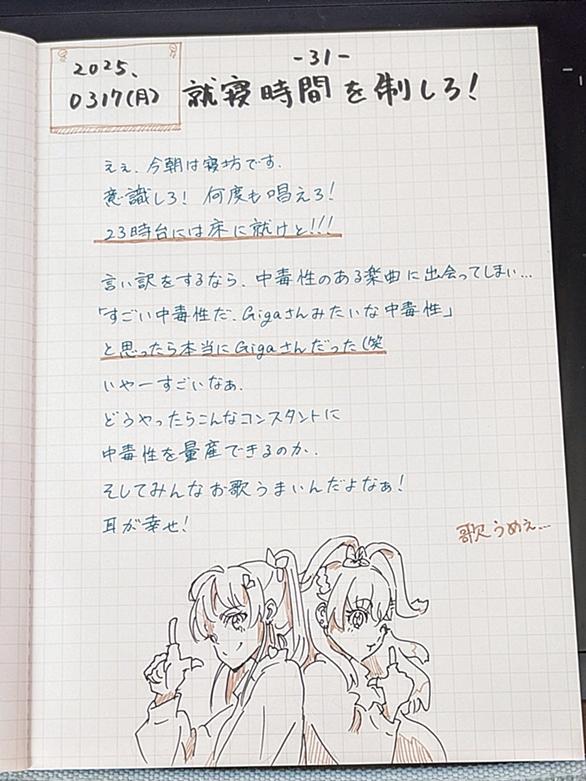 2025、
0317(月)
-31-
就寝時間を制しろ!
ええ、今朝は寝坊です.
意識しろ! 何度も唱えろ!
23時台には床に就けと!!!
言い訳をするなら、中毒性のある楽曲に出会ってしまい…
「すごい中毒性だ、Gigaさんみたいな中毒性」
と思ったら本当にGigaさんだった(笑
いやーすごいなぁ.
どうやったらこんなコンスタントに
中毒性を量産できるのか.
そしてみんなお歌うまいんだよなぁ!
耳が幸せ!
歌うめぇ…